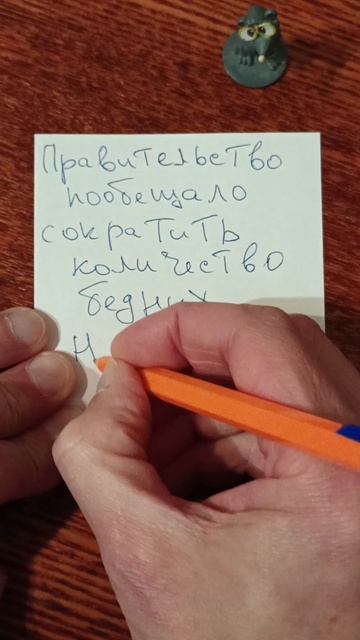 Правительство
пообещало
сократить
количество
бедных
Н